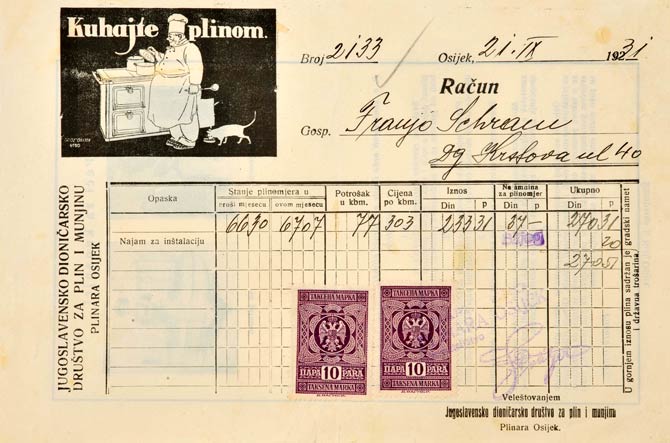 Kuhajte plinom.
Broj 2133 Osijek, 21. IX 1931
Račun
Gosp. Franjo Schram
Dg Krstova ul 40
JUGOSLAVENSKO DIONIČARSKO
DRUŠTVO ZA PLIN I MUNJINU
PLINARA OSIJEK
Opaska
Stanje plinomjera u
proši mjesecu
ovom mjesecu
Potrošak
u kbm.
Cijena
po kbm.
Iznos
Din p
Najamnina
za plinomjer
Din p
Ukupno
Din p
6630 6707 77 303 233 31 37– 270 31
20
270 51
Najam za inštalaciju
U gornjem iznosu plina sadržan je gradski namet
i državna trošarina.
ТАКСЕНА МАРКА
ПАРА 10 PARA
TAKSENA MARKA
ТАКСЕНА МАРКА
ПАРА 10 PARA
TAKSENA MARKA
Veleštovanjem
Jugoslavensko dioničarsko društvo za plin i munjinu
Plinara Osijek.